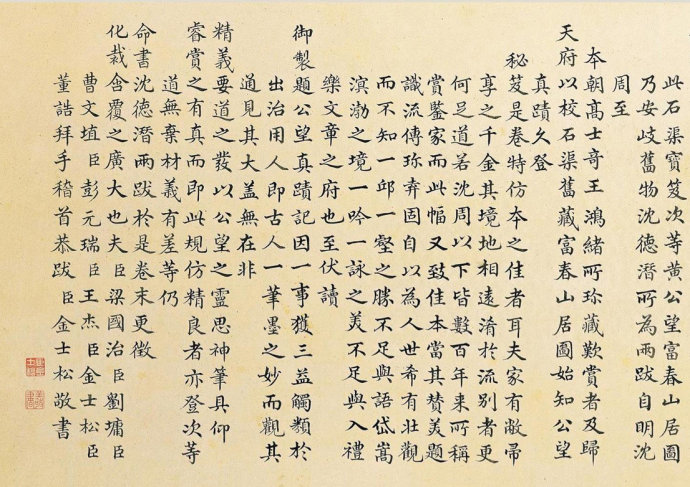 此石渠寶笈次等黄公望富春山居圖
乃安岐舊物沈德潛所為兩跋自明沈
周至
本朝高士奇王鴻緒所珍藏歎賞者及歸
天府以校石渠舊藏富春山居圖始知公望
真蹟久登
秘笈是卷特仿本之佳者耳夫家有敝帚
享之千金其境地相遠淆於流别者更
何足道若沈周以下皆數百年来所稱
賞鑒家而此幅又致佳本當其赞美題
識流傳珍弆固自以為人世希有壯觀
而不知一邱一壑之勝不足與語岱嵩
溟渤之境一吟一詠之美不足與入禮
樂文章之府也至伏讀
御製題公望真蹟記因一事獲三益觸類於
出治用人即古人一筆墨之妙而觀其
道見其大盖無在非
精義要道之發以公望之靈思神筆具仰
睿賞之有真而即此規仿精良者亦登次等
道無棄材義有差等仍
命書沈德潛兩跋於是卷末更徵
化裁含覆之廣大也夫臣梁國治臣劉墉臣
曹文埴臣彭元瑞臣王杰臣金士松臣
董誥拜手稽首恭跋臣金士松敬書